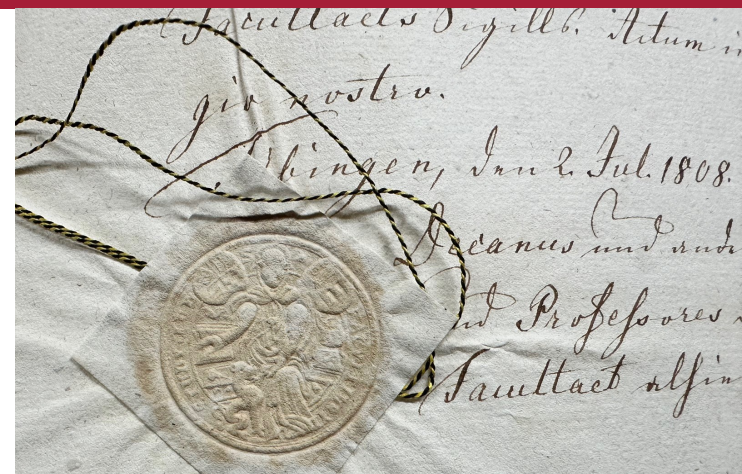 Facultaets Sigills. Actum in
gio nostro.
Tübingen, den 2. Jul. 1808.
Decanus und ande
nd Professores
Facultaet allhie